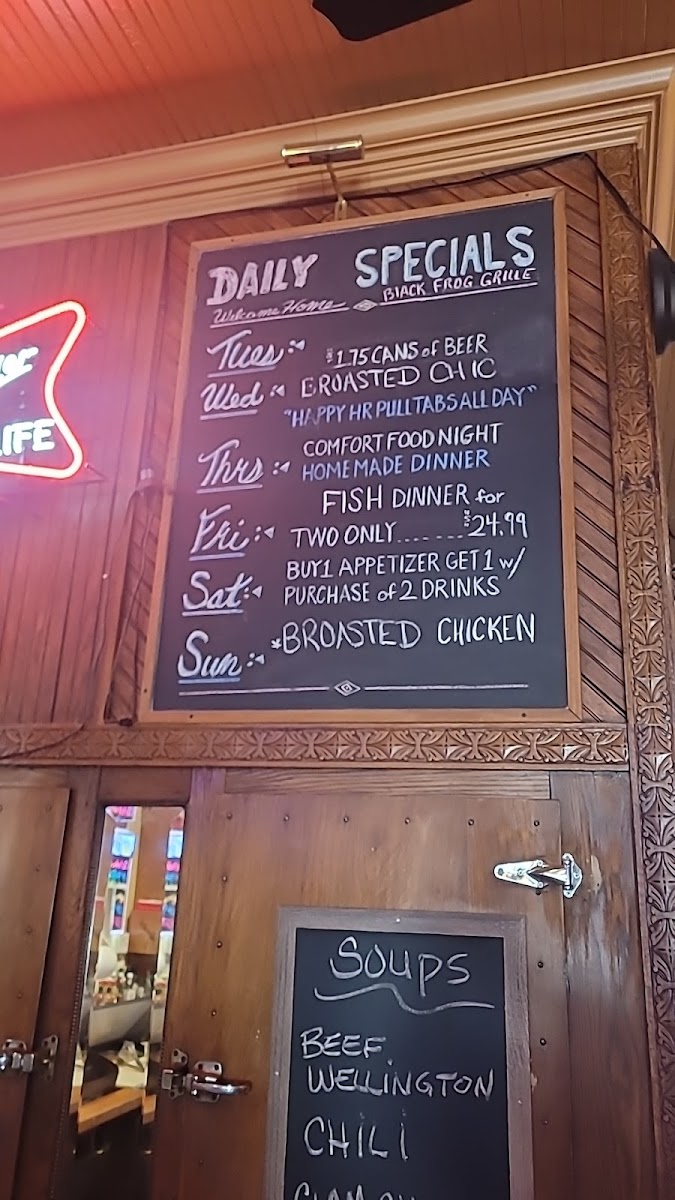 DAILY SPECIALS
Welcome Home BLACK FROG GRILLE
Tues: $1.75 CANS of BEER
Wed: BROASTED CHIC
"HAPPY HR PULLTABS ALL DAY"
Thrs: COMFORT FOOD NIGHT
HOMEMADE DINNER
Fri: FISH DINNER for
TWO ONLY....... $24.99
Sat: BUY 1 APPETIZER GET 1 w/
PURCHASE of 2 DRINKS
Sun: *BROASTED CHICKEN
LIFE
SOUPS
BEEF
WELLINGTON
CHILI
CLAM